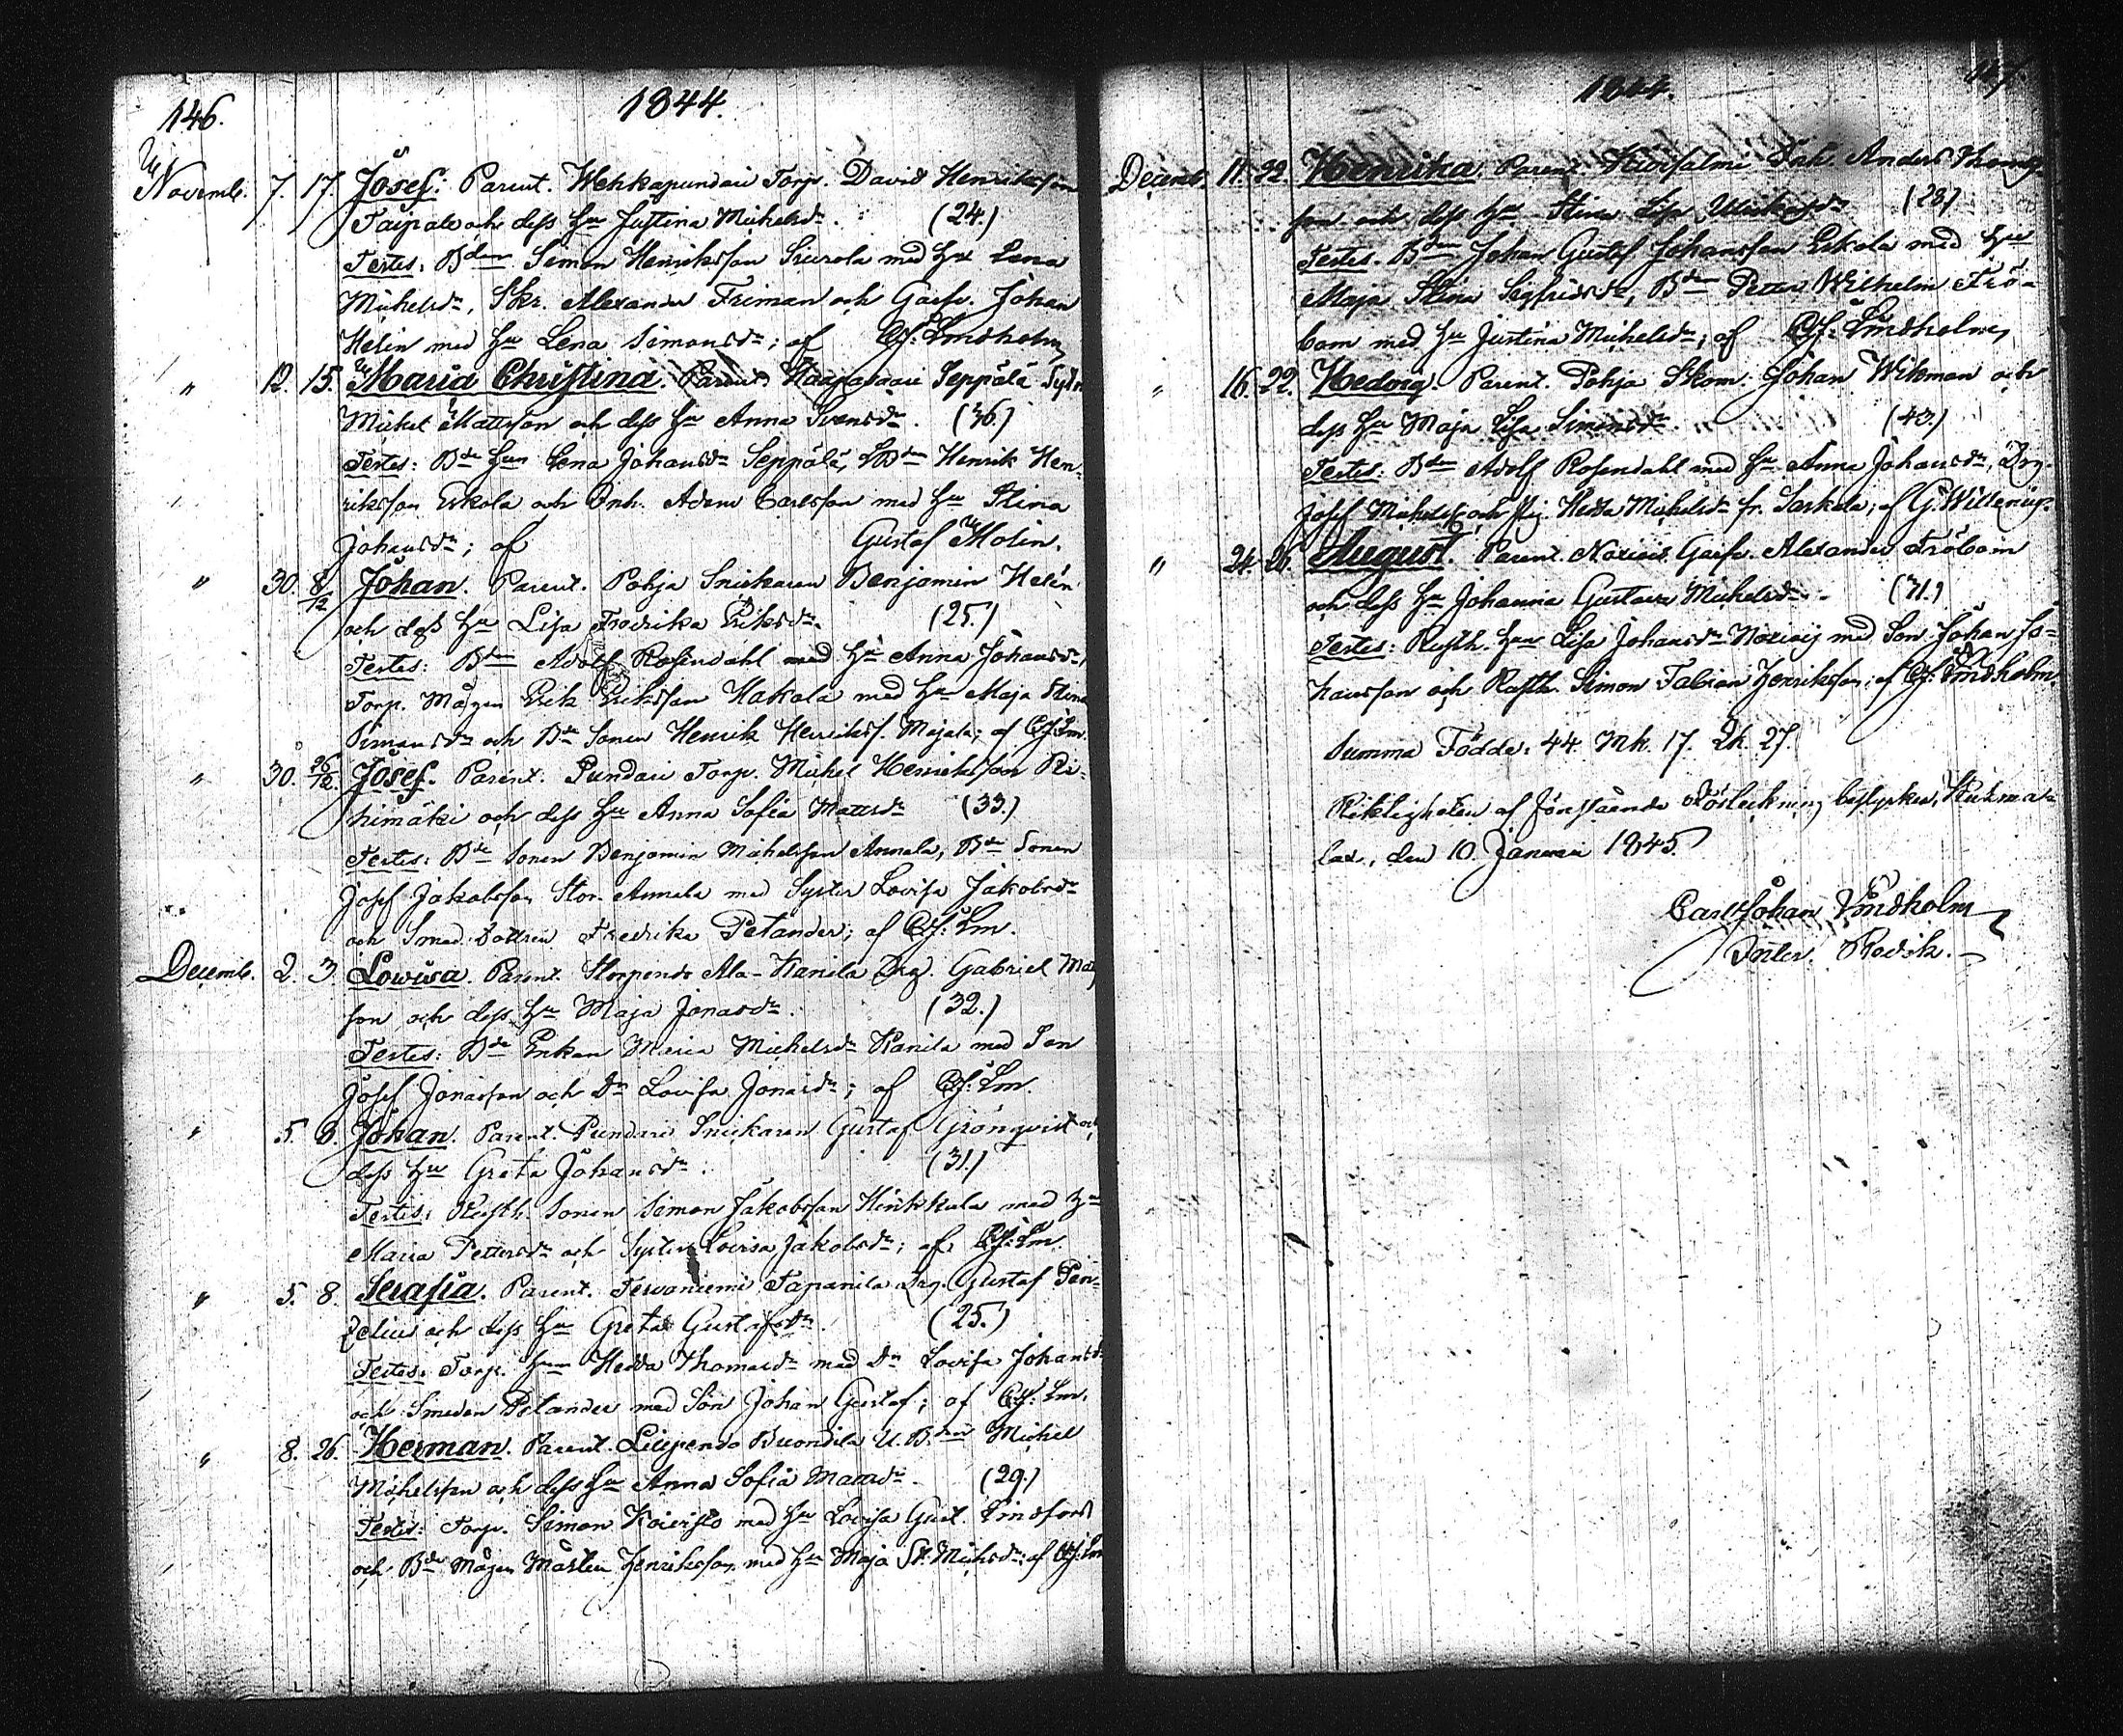 146.
1844.
Novemb. 7. 17. Josef. Parent. Wehkapundari Torp. David Henriksson
Taipale och dess Hu Justina Michelsdr. (24.)
Testes: Bden Simon Henriksson Sturola med Hu Lena
Michelsdr, Skr. Alexander Friman och Garfv. Johan
Helin med Hu Lena Simonsdr; af C.J. Lindholm
" 12. 15. Maria Christina. Parent. Seppälä
Michel Mattsson och dess Hu Anna Svensdr. (36.)
Testes: Bde Hun Lena Johansdr Seppälä, Bden Henrik Hen-
riksson Eskola och Inh. Adam Carlsson med Hu Stina
Johansdr; af Gustaf Molin.
" 30. 8/12 Johan. Parent. Pohja Snickaren Benjamin Helin
och dess Hu Lisa Fredrika Eriksdr. (25.)
Testes: Bden Adolf Rosendahl med Hu Anna Johansdr,
Torp. Mågen Erik Eriksson Hakala med Hu Maja Stina
Simonsdr och Bde Sonen Henrik Henrikss. Majala; af C.J. Lm.
" 30. 26/12. Josef. Parent. Pundari Torp. Michel Henriksson Ri-
himäki och dess Hu Anna Sofia Mattsdr (33.)
Testes: Bde Sonen Benjamin Michelsson Annala, Bde Sonen
Josef Jakobsson Stor-Annala med Syster Lovisa Jakobsdr
och Smed. Dottren Fredrika Petander; af C.J. Lm.
Decemb. 2. 3. Lowisa. Parent. Storpendo Ala-Kanila Drg. Gabriel Mats-
son och dess Hu Maja Jonasdr. (32.)
Testes: Bde Enkan Maria Michelsdr Kanila med Son
Josef Jonasson och Dr Lovisa Jonasdr; af C.J. Lm.
" 5. 6. Johan. Parent. Pundari Snickaren Gustaf Grönqvist och
dess Hu Greta Johansdr. (31.)
Testes: Rusth. Sonen Simon Jakobsson Hinkkala med Hu
Maria Pettersdr och Syster Lovisa Jakobsdr; af C.J. Lm.
" 5. 8. Serafia. Parent. Tervaniemi Tapanila Drg. Gustaf Pen-
zelius och dess Hu Greta Gustafsdr. (25.)
Testes: Torp. Hun Hedda Thomasdr med Dr Lovisa Johansdr
och Smeden Petander med Son Johan Gustaf; af C.J. Lm.
" 8. 26. Herman. Parent. U. Bden Michel
Michelsson och dess Hu Anna Sofia Mattsdr. (29.)
Testes: Torp. Simon Koivisto med Hu Lovisa Gust. Lindfors
och Bde Mågen Mårten Henriksson med Hu Maja St. Michsdr; af C.J. Lm
147.
1844.
Decemb. 11. 22. Henrika. Parent. Inh. Anders Thomas-
son och dess Hu Stina Lisa (28)
Testes. Bden Johan Gustaf Johansson Eskola med Hu
Maja Stina Segfridsdr, Bden Petter Wilhelm Frö-
bom med Hu Justina Michelsdr; af C.J. Lindholm,
" 16. 22. Hedvig. Parent. Pohja Skom. Johan Wikman och
dess Hu Maja Lisa Simonsdr. (43.)
Testes: Bden Adolf Rosendahl med Hu Anna Johansdr, Drg.
Josef Michelss. och Pig. Hedda Michelsdr fr. Sarkola; af G. Willenius.
" 24. 26. August. Parent. Garfv. Alexander Fröbom
och dess Hu Johanna Gustava Michelsdr. (31.)
Testes: Rusth. Hun Lisa Johansdr med Son Johan Jo-
hansson och Rusth. Simon Fabian Henriksson; af C.J. Lindholm.
Summa Födde: 44. Mk. 17. Qk. 27.
Riktigheten af förestående förteckning bestyrker, Kulma-
lax, den 10. Januari 1845.
Carl Johan Lindholm